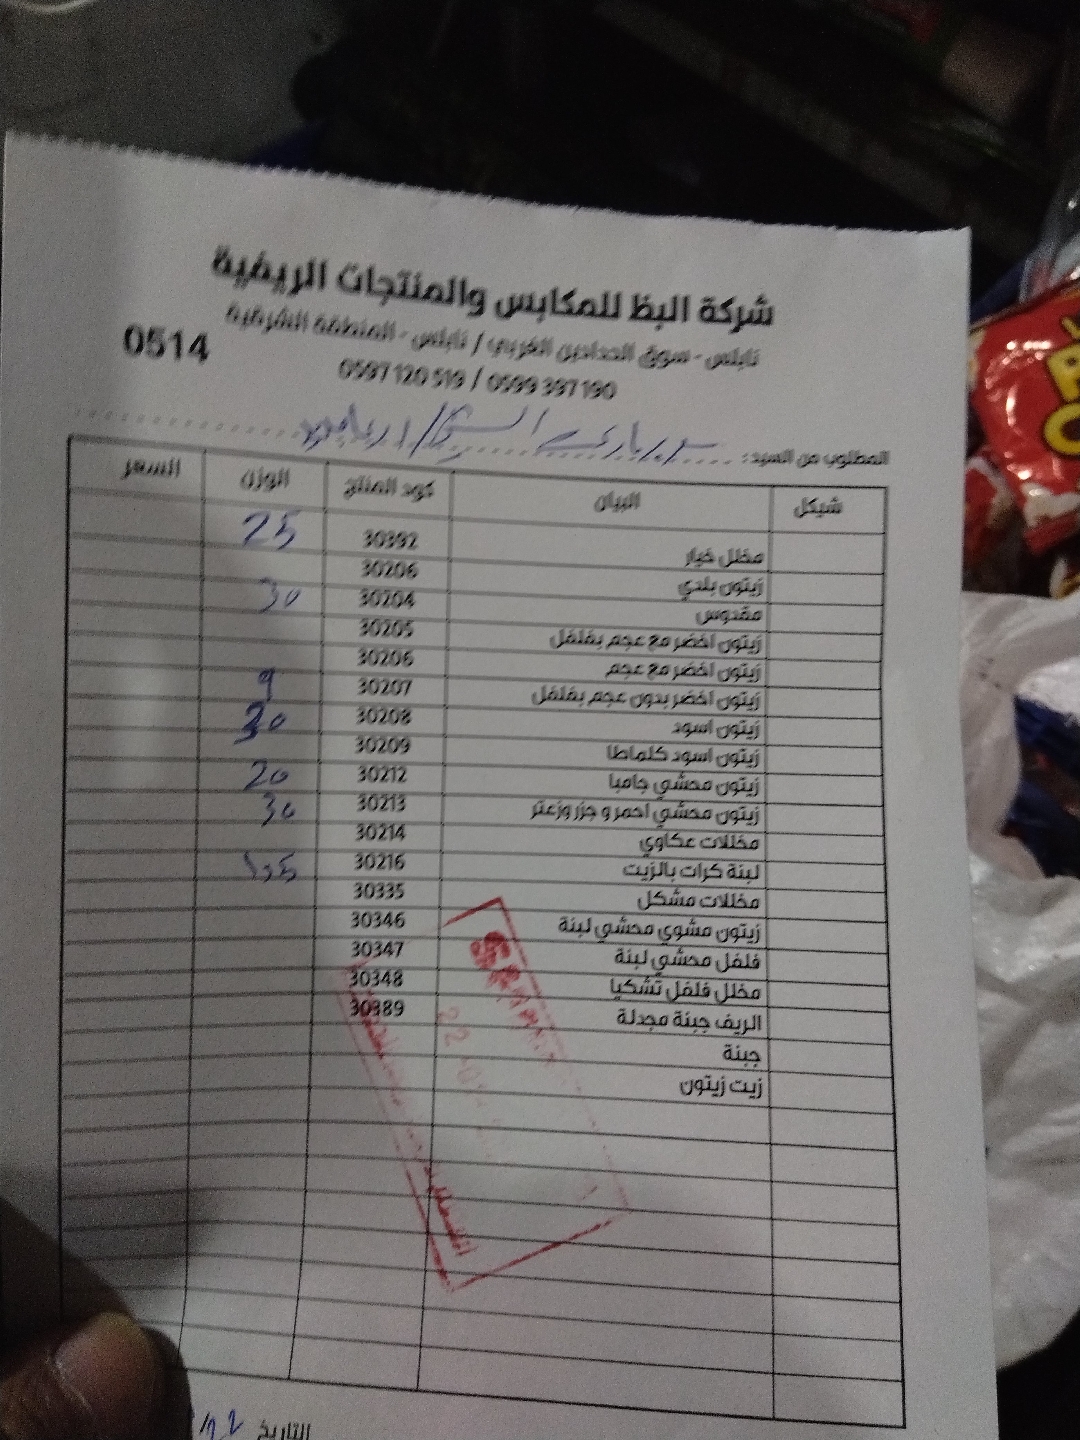 شركة البظ للمكابس والمنتجات الريفية
نابلس - سوق الحدادين الغربي / نابلس - المنطقة الشرقية
0514
0599 397 190 / 0597 120 519
المطلوب من السيد: سوبرماركت
شيكل البيان كود المنتج الوزن السعر
مخلل خيار 30392 25
زيتون بلدي 30206
مقدوس 30204 30
زيتون اخضر مع عجم بفلفل 30205
زيتون اخضر مع عجم 30206
زيتون اخضر بدون عجم بفلفل 30207 9
زيتون اسود 30208 30
زيتون اسود كلماطا 30209
زيتون محشي جامبا 30212 20
زيتون محشي احمر و جزر وزعتر 30213 30
مخللات عكاوي 30214
لبنة كرات بالزيت 30216
مخللات مشكل 30335
زيتون مشوي محشي لبنة 30346
فلفل محشي لبنة 30347
مخلل فلفل تشكيا 30348
الريف جبنة مجدلة 30389
جبنة
زيت زيتون
التاريخ